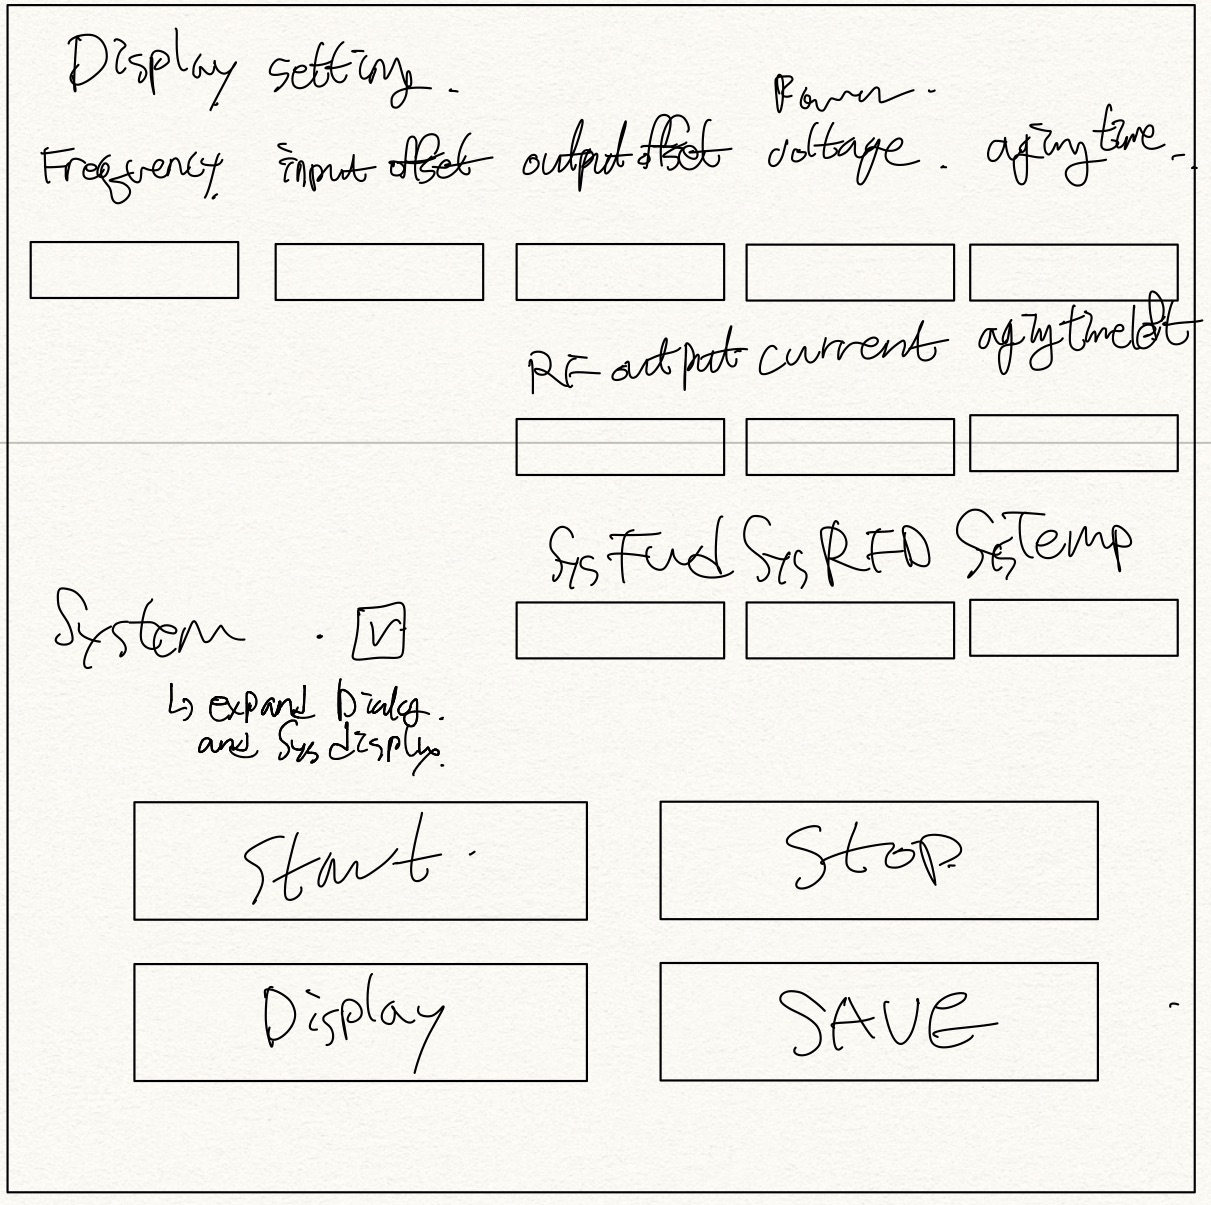 Display setting.
Power.
Frequency input offset output offset voltage. aging time.
RF output current aging time left
Sys Fwd Sys RFD Sys Temp
System . v
↳ expand Dialog.
and Sys display.
Start. Stop
Display SAVE